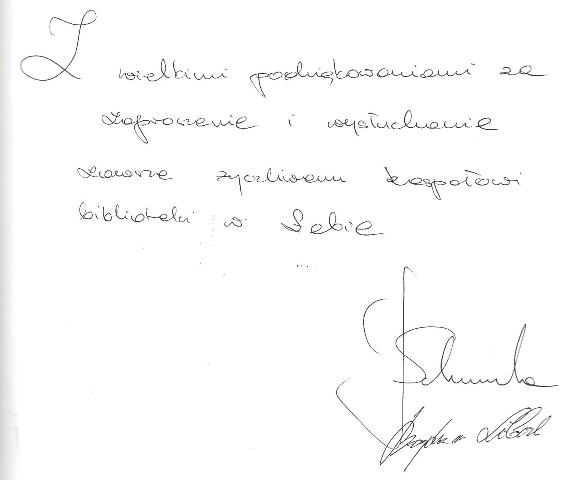 Z wielkimi podziękowaniami za
zaproszenie i wysłuchanie
zawsze życzliwemu zespołowi
biblioteki w Łebie